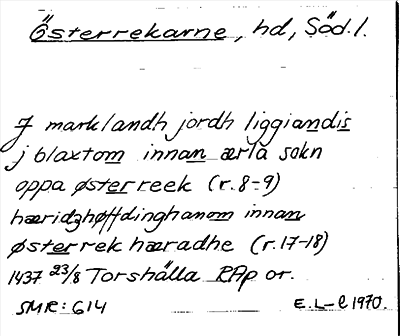 Österrekarne, hd, Söd.l.
J marklandh jordh liggiandis
j blaxtom innan ærla sokn
oppa østerreek (r.8-9)
hæridzhøffdinghanom innan
østerrek hæradhe (r.17-18)
1437 23/8 Torshälla RAp or.
SMR: 614 E. L-l 1970.